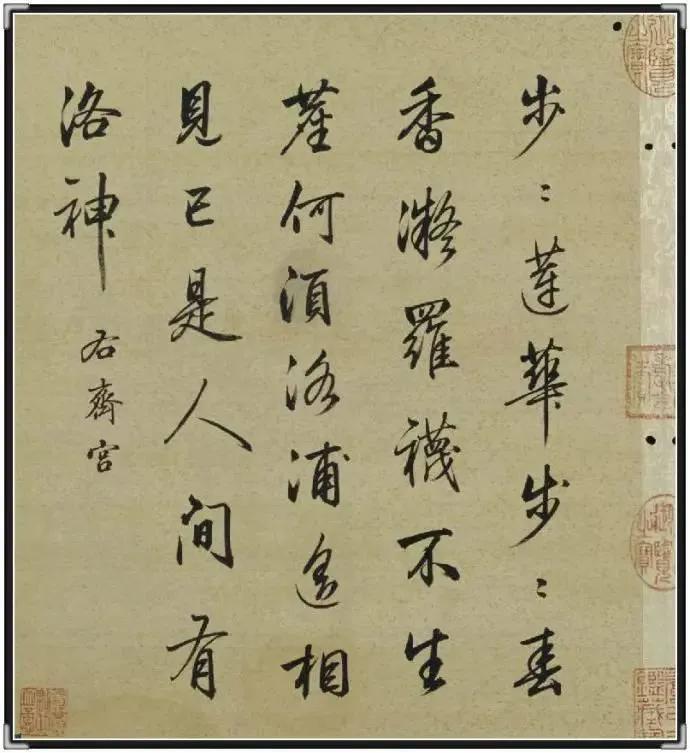 步〻蓮華步〻春
香凝羅襪不生
塵何須洛浦遥相
見已是人間有
洛神
右齊宮